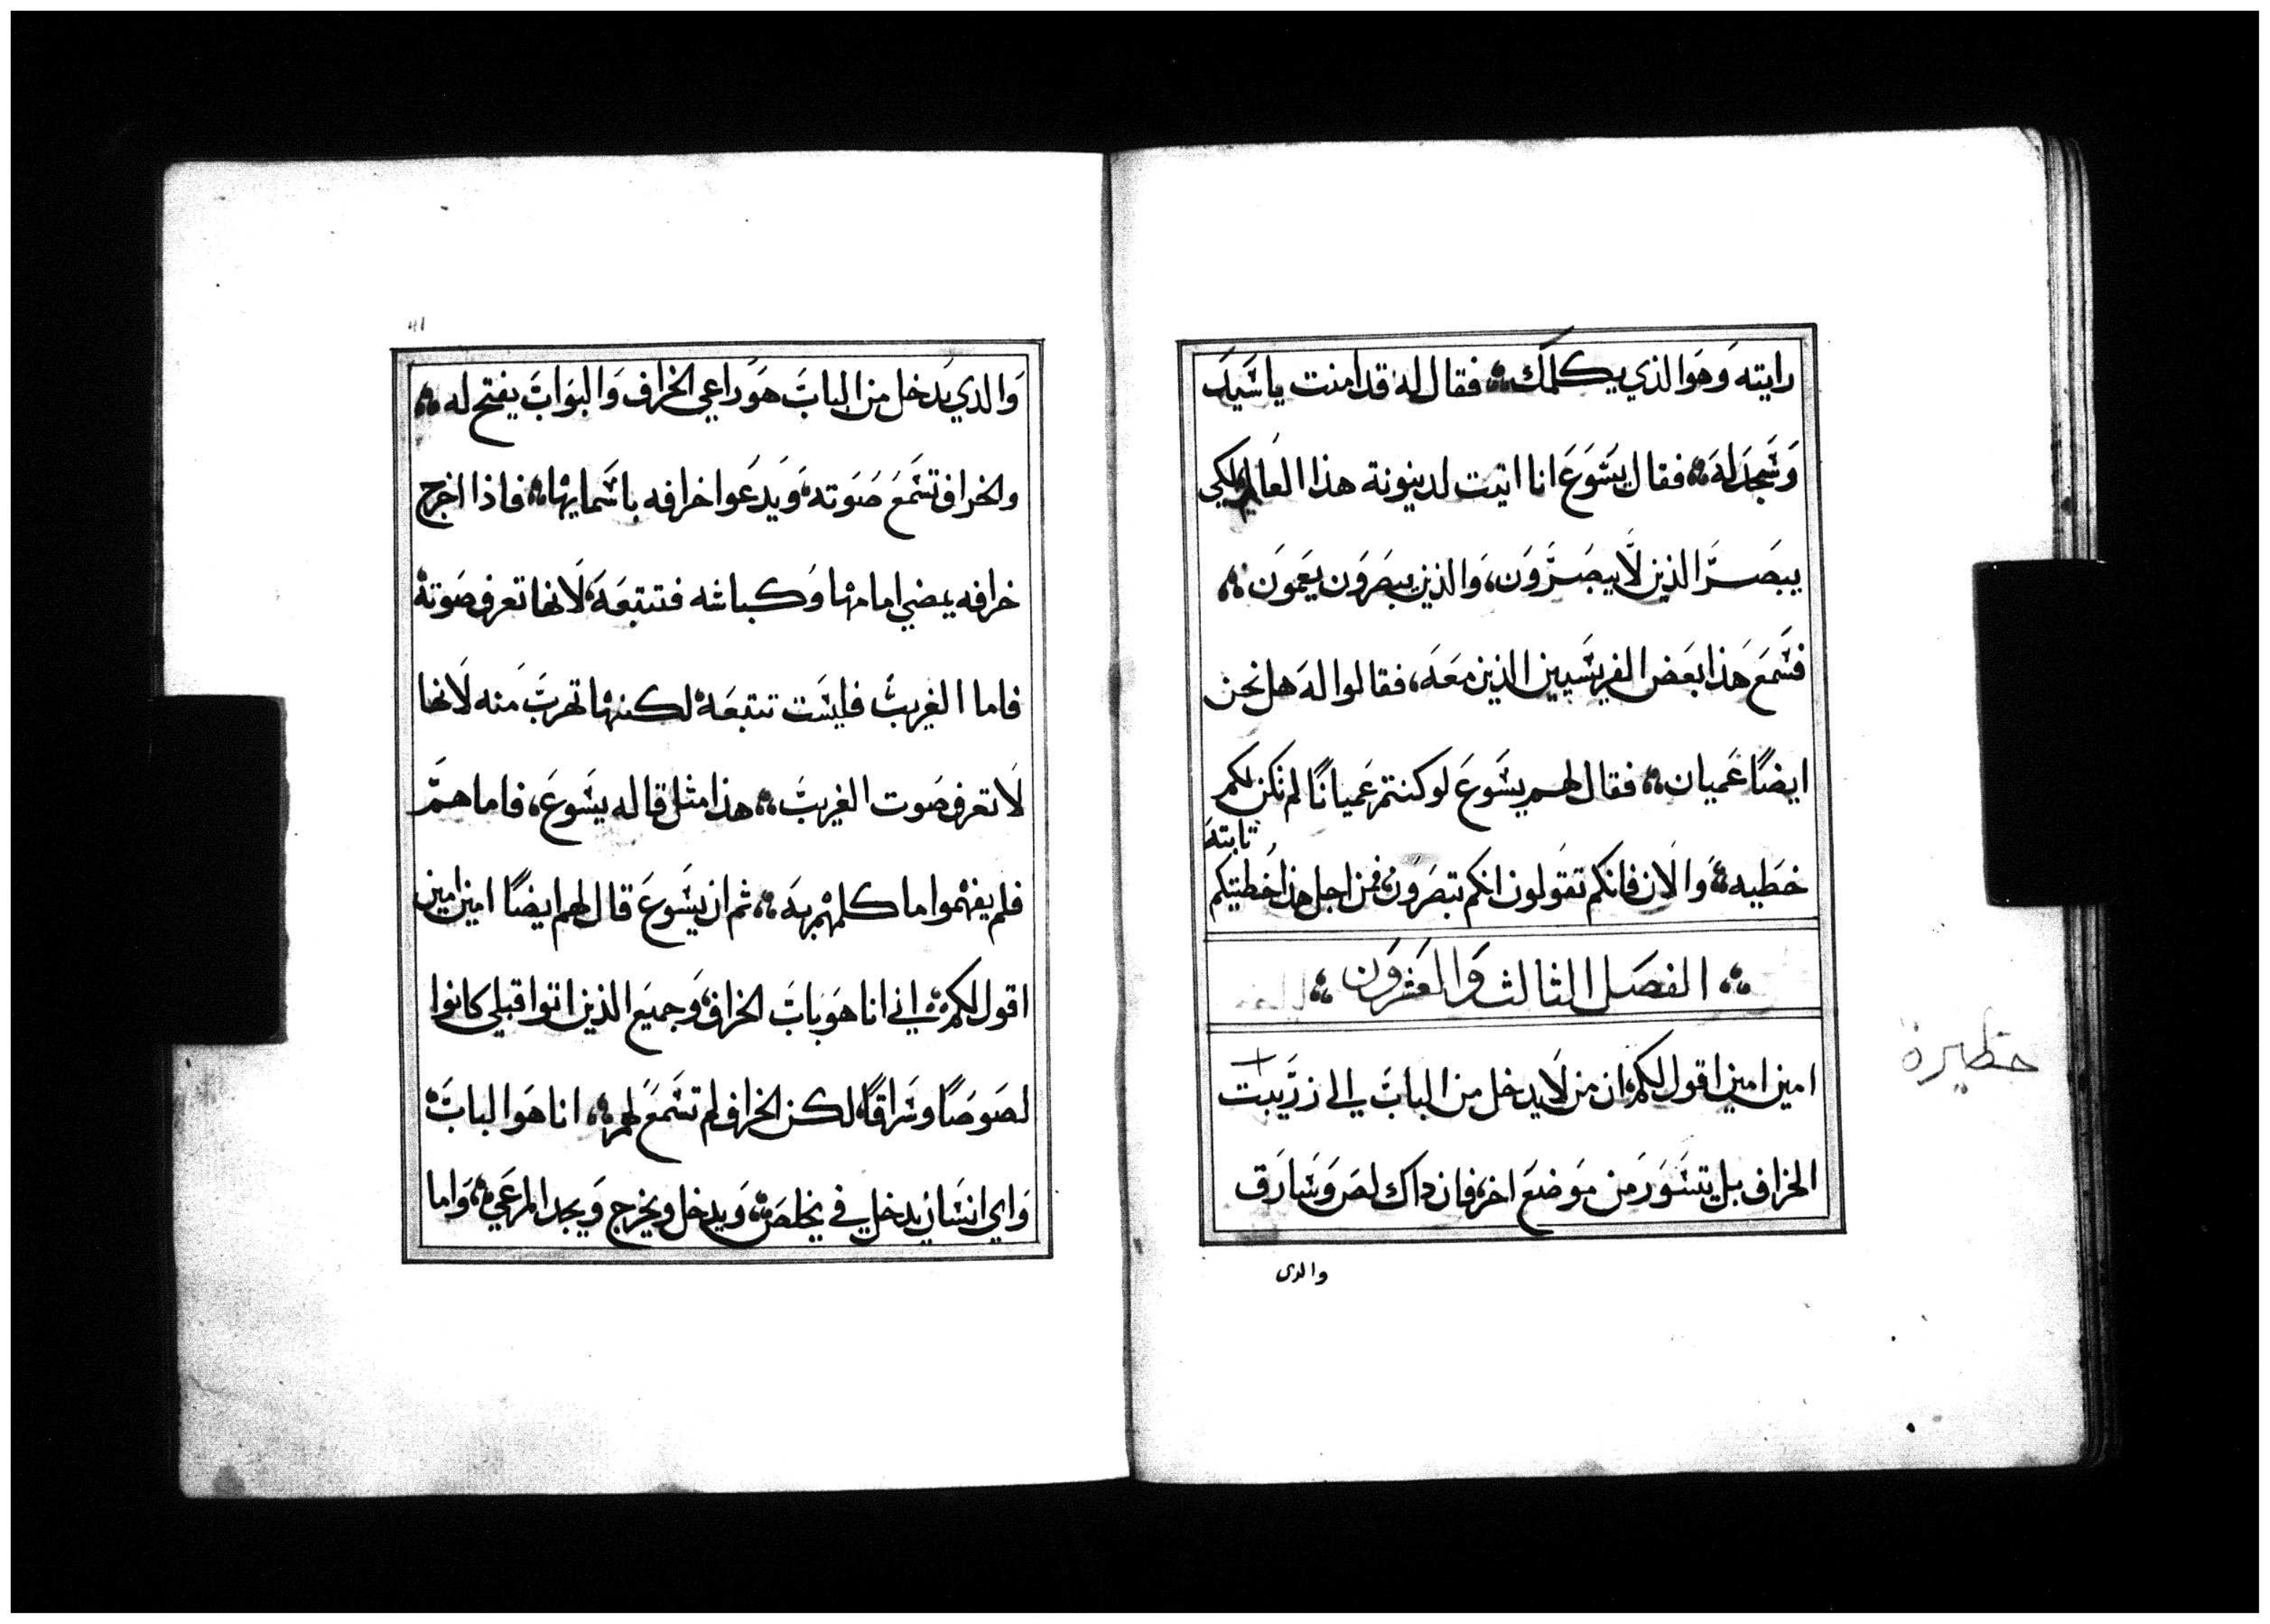 رايته وَهَوَ الذي يكلمك؞ فقال له قد امنت ياسَيَد
وَسَجدَ لهَ؞ فقال يسَوَعَ انا اتيت لدينونة هذا العَالم لكي
يبصَرَ الذين لَا يبصَرَوَن، وَالذين يبصَرَوَن يعَموَن؞
فسَمعَ هَذا بعَض الفريسَيين الذين معَهَ، فقالوا لهَ هل نحن
ايضًا عَميان؞ فقال لهم يسَوَعَ لو كنتم عَميانًا لم تكن لكم
خطَيه؞ وَالَان فانكم تقَولون انكم تبصَرَون، فمن اجل هذا خَطيتكم
ثابتهَ
؞ الفصَل الثالث وَالعَشرَوَن ؞
امين امين اقول لكم، ان من لَا يدخل من البابَ الى زرَيبت
الخراف بل يتسَوَرَ من موَضعَ اخر، فان داك لصَ وَسَارَق
والدى
حظيرة
41
وَالدي يَدخل من البابَ هوَ رَاعي الخراف وَالبوَابَ يفتح له؞
والخراف تسَمعَ صَوَته، وَيَدعَوا خرافه باسَمايها؞ فاذا اخرج
خرافه يمضي امامها وَكباشه فتتبعَهَ، لَانها تعرف صَوَته
فاما الغريبَ فليسَت تتبعَهَ لكنها تهربَ منه لَانها
لَا تعرف صَوت الغريبَ؞ هذا مثل قاله يسَوعَ، فاما همَ
فلم يفهموا ما كلمهم بهَ؞ ثم ان يسَوعَ قال لهم ايضًا امين امين
اقول لكم؞ اني انا هوَ بابَ الخراف، وَجميعَ الذين اتوا قبلي كانوا
لصَوصَا وسَراقًا، لكن الخراف لم تسَمعَ لهم؞ انا هوَ البابَ
وَاي انسَان يدخل بي يخلصَ، وَيدخل ويخرج وَيجد المرعَي؞ وَاما